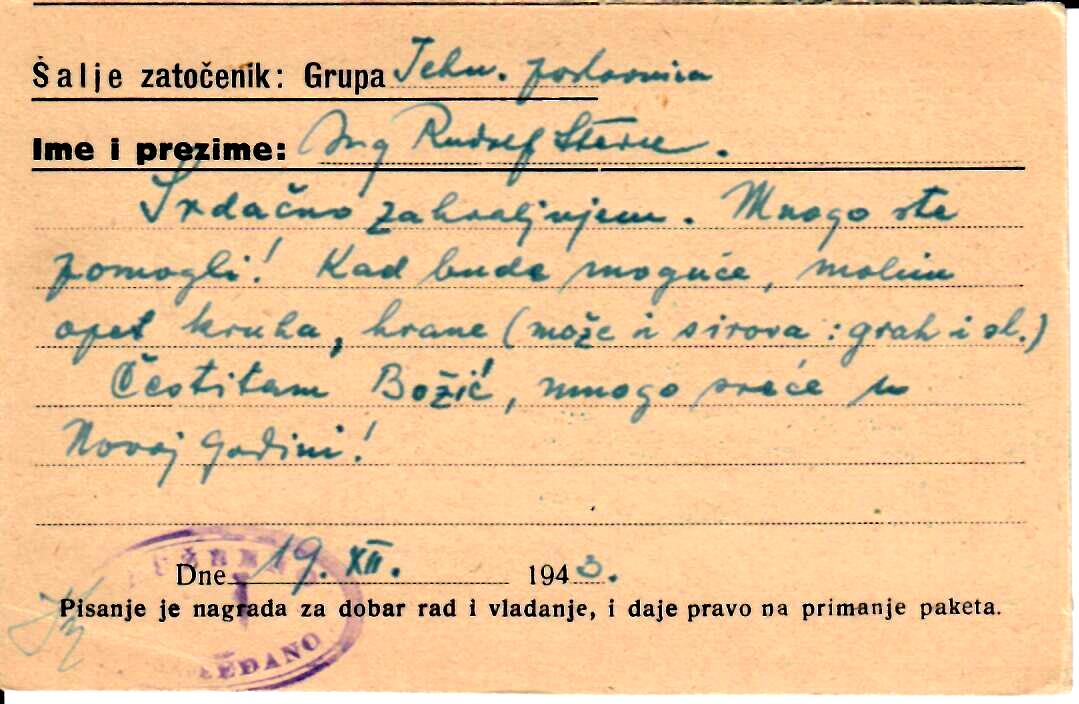 Šalje zatočenik: Grupa Tehn. poslovnica
Ime i prezime: Ing Rudolf
Srdačno zahvaljujem. Mnogo ste
pomogli! Kad bude moguće, molim
opet kruha, hrane (može i sirova: grah i sl.)
Čestitam Božić, mnogo sreće u
Novoj Godini!
Dne 19. XII. 1943.
Pisanje je nagrada za dobar rad i vladanje, i daje pravo na primanje paketa.